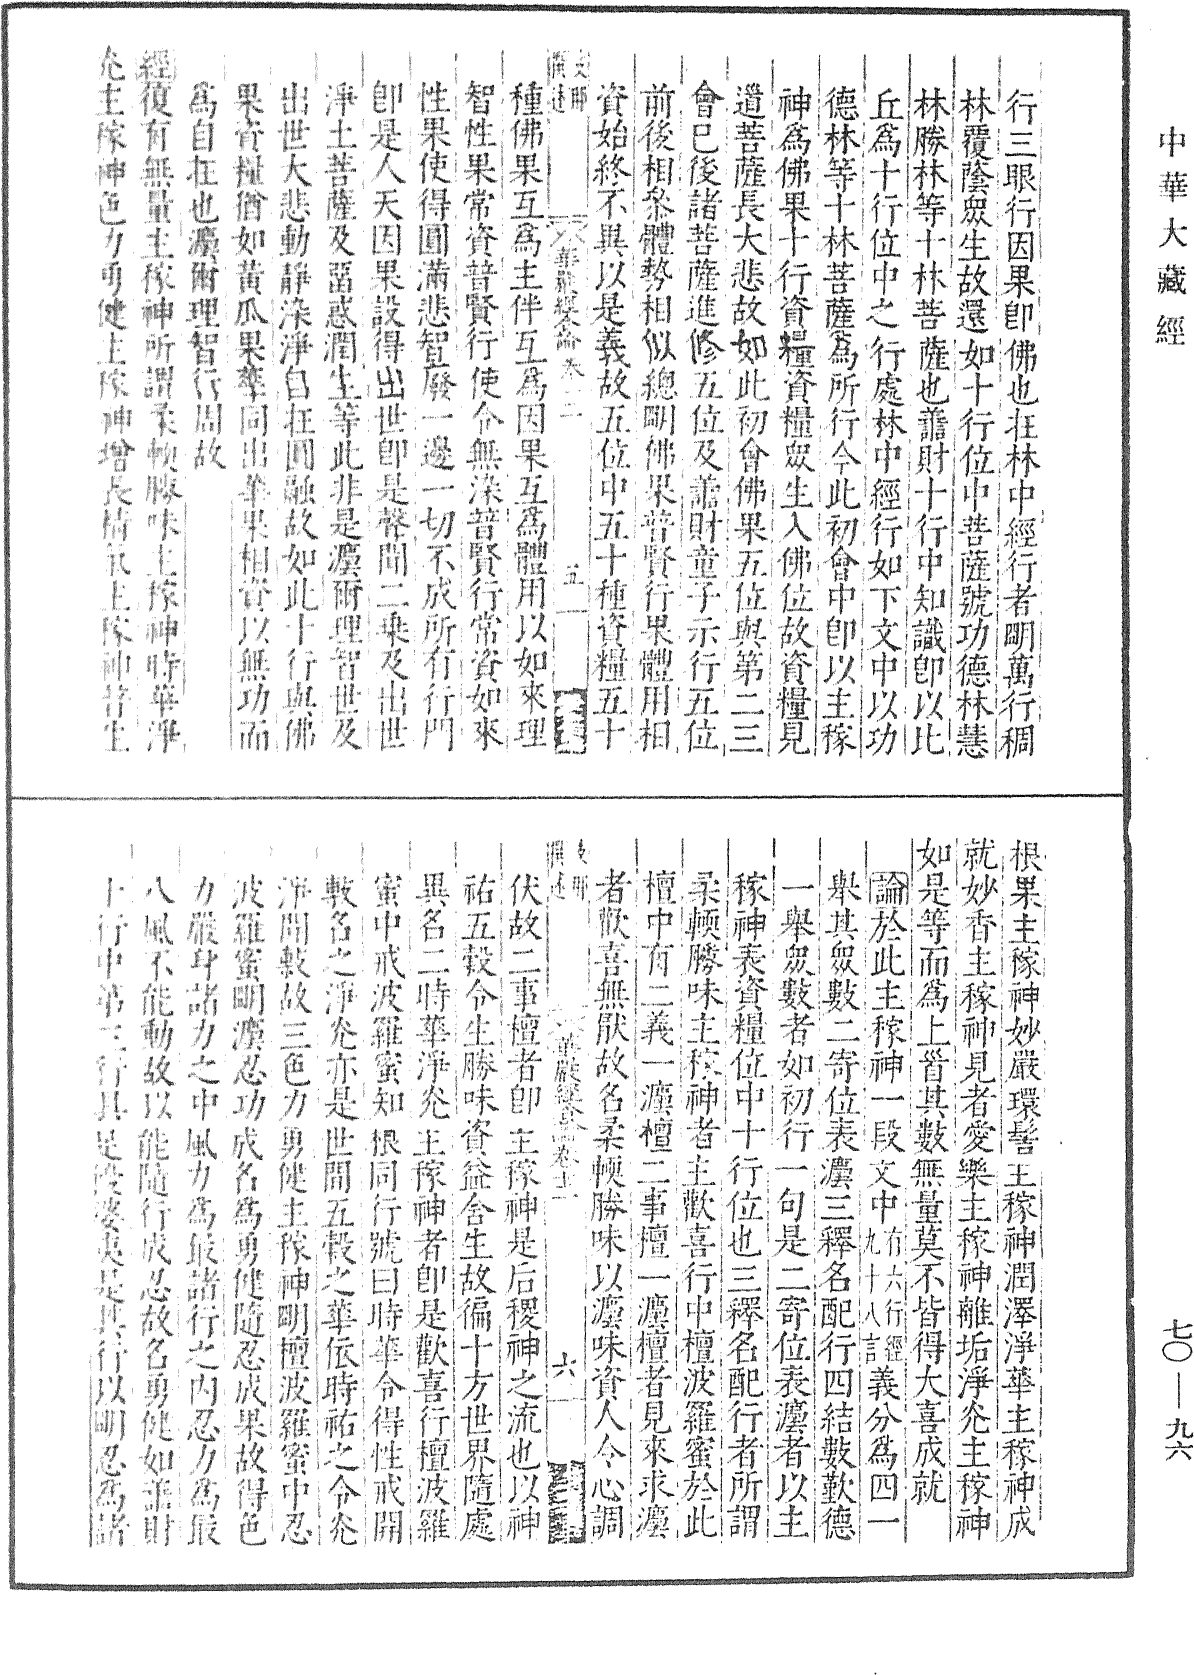 中華大藏經
行三眼行因果卽佛也在林中經行者明萬行稠
林覆蔭眾生故還如十行位中菩薩號功德林慧
林勝林等十林菩薩也善財十行中知識卽以比
丘為十行位中之行處林中經行如下文中以功
德林等十林菩薩為所行今此初會中卽以主稼
神為佛果十行資糧資糧眾生入佛位故資糧見
道菩薩長大悲故如此初會佛果五位與第二三
會已後諸菩薩進修五位及善財童子示行五位
前後相參體勢相似總明佛果普賢行果體用相
資始終不異以是義故五位中五十種資糧五十
華嚴經合論卷十二
五
種佛果互為主伴互為因果互為體用以如來理
智性果常資普賢行使令無染普賢行常資如來
性果使得圓滿悲智廢一邊一切不成所有行門
卽是人天因果設得出世卽是聲聞二乘及出世
淨土菩薩及留惑潤生等此非是法爾理智世及
出世大悲動靜染淨自在圓融故如此十行與佛
果資糧猶如黃瓜果華同出華果相資以無功而
為自在也法爾理智行周故
經復有無量主稼神所謂柔輭勝味主稼神時華淨
光主稼神色力勇健主稼神增長精氣主稼神普生
根果主稼神妙嚴環髻主稼神潤澤淨華主稼神成
就妙香主稼神見者愛樂主稼神離垢淨光主稼神
如是等而為上首其數無量莫不皆得大喜成就
論於此主稼神一段文中有六行經九十八言義分為四一
舉其眾數二寄位表法三釋名配行四結數歎德
一舉眾數者如初行一句是二寄位表法者以主
稼神表資糧位中十行位也三釋名配行者所謂
柔輭勝味主稼神者主歡喜行中檀波羅蜜於此
檀中有二義一法檀二事檀一法檀者見來求法
者歡喜無厭故名柔輭勝味以法味資人令心調
華嚴經合論卷十二
六
伏故二事檀者卽主稼神是后稷神之流也以神
祐五穀令生勝味資益含生故徧十方世界隨處
異名二時華淨光主稼神者卽是歡喜行檀波羅
蜜中戒波羅蜜知根同行號曰時華令得性戒開
敷名之淨光亦是世間五穀之華依時祐之令光
淨開敷故三色力勇健主稼神明檀波羅蜜中忍
波羅蜜明法忍功成名為勇健隨忍成果故得色
力嚴身諸力之中風力為最諸行之內忍力為最
八風不能動故以能隨行成忍故名勇健如善財
十行中第三行具足優婆夷是其行以明忍為諸
七〇—九六